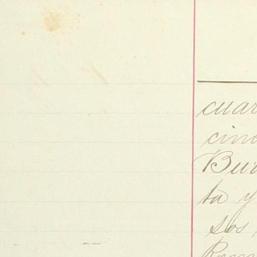 cuar
cinc
Bur
ta y
sos
Rom